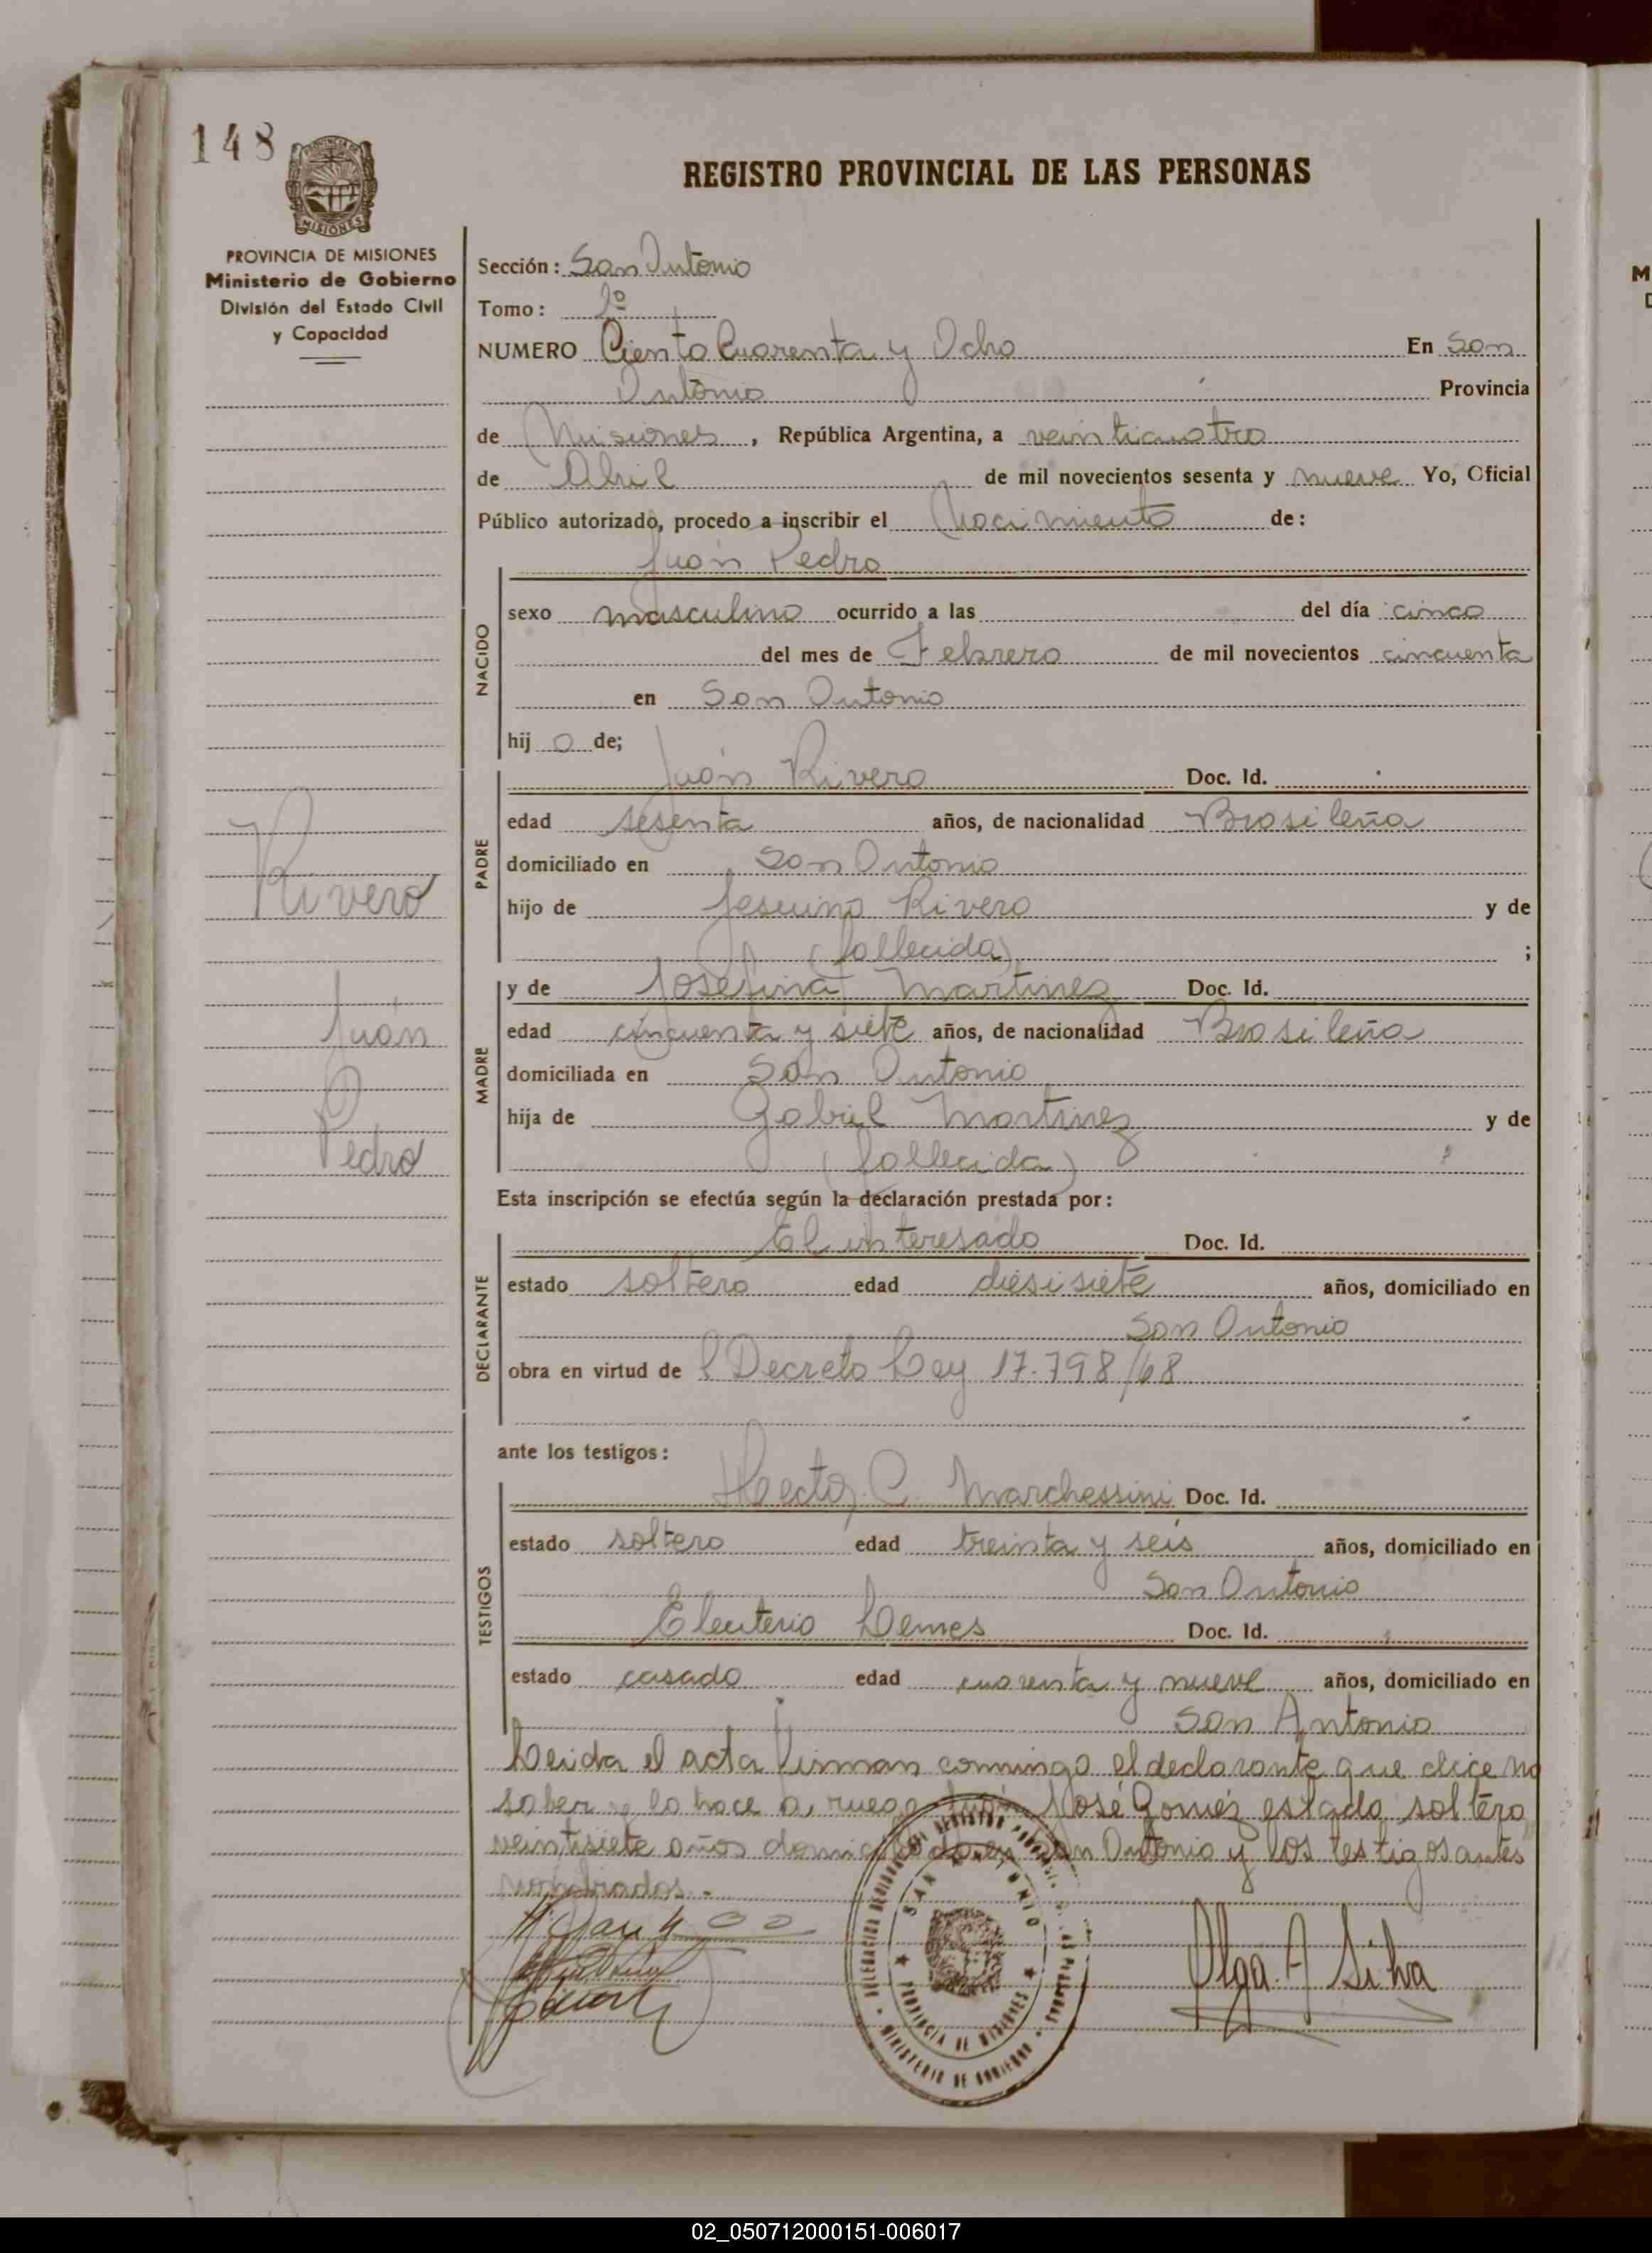 148
PROVINCIA DE
MISIONES
REGISTRO PROVINCIAL DE LAS PERSONAS
PROVINCIA DE MISIONES
Ministerio de Gobierno
División del Estado Civil
y Capacidad
Sección: San Antonio
Tomo: 2º
NUMERO Ciento Cuarenta y Ocho En San
Antonio Provincia
de Misiones, República Argentina, a veinticuatro
de Abril de mil novecientos sesenta y nueve Yo, Oficial
Público autorizado, procedo a inscribir el Nacimiento de:
Juán Pedro
NACIDO
sexo masculino ocurrido a las del día cinco
del mes de Febrero de mil novecientos cincuenta
en San Antonio
hijo de;
Juán Rivero Doc. Id.
PADRE
edad sesenta años, de nacionalidad Brasileña
domiciliado en San Antonio
hijo de Jesuino Rivero y de
(fallecida) ;
Rivero
Juán
Pedro
MADRE
y de Josefina Martinez Doc. Id.
edad cincuenta y siete años, de nacionalidad Brasileña
domiciliada en San Antonio
hija de Gabriel Martinez y de
(fallecida)
Esta inscripción se efectúa según la declaración prestada por:
DECLARANTE
El interesado Doc. Id.
estado soltero edad diesisiete años, domiciliado en
San Antonio
obra en virtud de l Decreto Ley 17.798/68
ante los testigos:
TESTIGOS
Hector C. Marchessini Doc. Id.
estado soltero edad treinta y seis años, domiciliado en
San Antonio
Eleuterio Lemes Doc. Id.
estado casado edad cuarenta y nueve años, domiciliado en
San Antonio
Leida el acta firman conmingo el declarante que dice no
saber y lo hace a ruego Juán José Gomez estado soltero
veintisiete años domiciliado en San Antonio y los testigos antes
nombrados.-
SAN ANTONIO
PROVINCIA DE MISIONES
MINISTERIO DE GOBIERNO
Olga A Silva
02_050712000151-006017